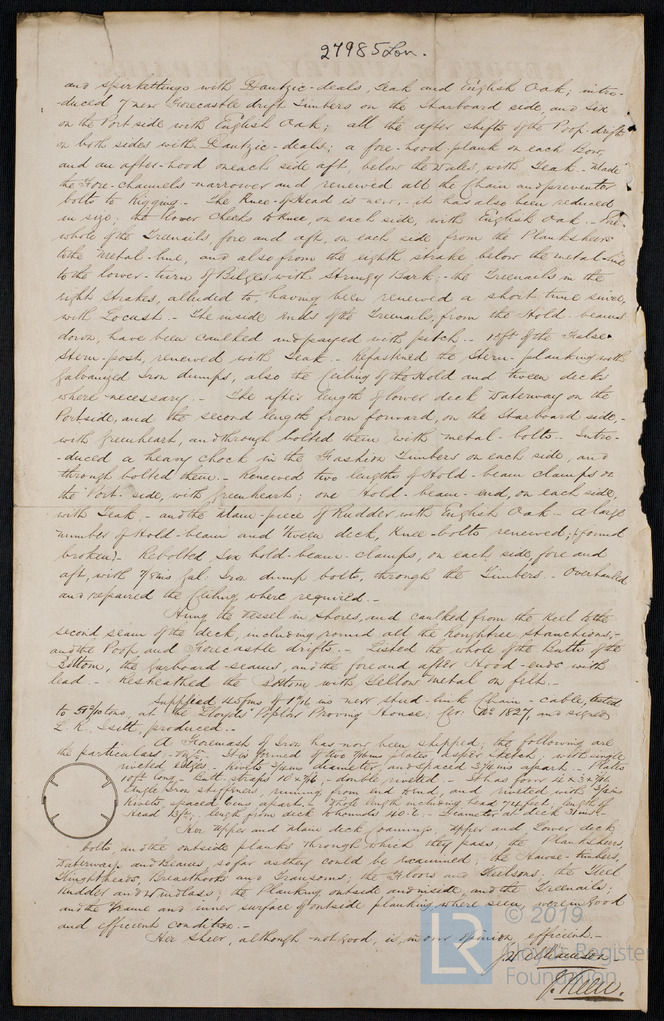 27985 Lon.
and spirkettings with Dantzic-deals, Teak and English Oak; intro-
-duced 7 new Forecastle drift Timbers on the Starboard side, and Six
on the Port side with English Oak; all the after shifts of the Poop-drifts
on both sides with Dantzic-deals; a fore-hood-plank on each Bow,
and an after-hood on each side aft, below the Wales, with Teak.- Made
the Fore-channels narrower and renewed all the Chain and preventer
bolts to Rigging.- The Knee-of-Head is new,- it has also been reduced
in size; the lower Cheeks to Knee, on each side, with English Oak.- The
whole of the Treenails, fore and aft, on each side from the Planksheer
to the Metal-line, and also from the eighth strake below the metal-line
to the lower-turn of Bilges with Stringy Bark;- the Treenails in the
eight Strakes, alluded to, having been renewed a short time since,
with Locust.- The inside ends of the Treenails, from the Hold-beams
down, have been caulked and payed with pitch.- 12 ft of the False
Stern-post, renewed with Teak.- Refastened the Stern-planking with
Galvanized Iron dumps, also the Ceiling of the Hold and 'tween decks
where necessary.- The after length of lower deck Waterway on the
Port side, and the second length from forward, on the Starboard side,-
with Greenheart, and through bolted them with metal-bolts.- Intro-
-duced a heavy chock in the Fashion Timbers on each side, and
through bolted them.- Renewed two lengths of Hold-beam clamps on
the Port-side, with Greenheart; one Hold-beam-end, on each side,
with Teak,- and the Main-piece of Rudder with English Oak.- A large
number of Hold-beam and 'tween deck, Knee-bolts renewed; (found
broken).- Rebolted Six hold-beam-clamps, on each side, fore and
aft, with 7/8 ins Gal: Iron dump bolts, through the Timbers.- Overhauled
and repaired the Ceiling, where required.-
Hung the Vessel in Shores, and caulked from the Keel to the
second seam of the deck, including round all the Roughtree Stanchions,-
and the Poop and Forecastle drifts.- Listed the whole of the Butts of the
Bottom, the Garboard seams, and the fore and after Hood-ends with
lead.- Resheathed the Bottom with Yellow Metal on felt.-
Supplied 45 fms of 1 9/16 ins new Stud-link Chain-cable, tested
to tons, at the Lloyds' Poplar Proving House; Cer. No 1827, and signed
L. R. Isitt, produced.-
A Foremast of Iron has now been shipped; the following are
the particulars.- It is formed of two plates as per Sketch, with single
riveted edges.- Rivets diameter, and spaced apart.- Plates
10 ft long.- Butt straps 10 x - double riveted.- It has four
Angle Iron stiffeners, running from end to end, and riveted with
Rivets, spaced 6 ins apart.- Whole length including head feet, length of
Head length from deck to hounds Diameter at deck
Her Upper and Main deck Coamings, Upper and Lower deck
bolts, and the outside planks through which they pass, the Planksheers,
Waterways and Beams, so far as they could be examined; the Hawse-timbers,
Knightheads, Breasthooks and Transoms; the Floors and Keelsons; the Keel
Rudder and Windlass; the Planking outside and inside, and the Treenails;
and the Frame and inner surface of outside planking where seen, were in good
and efficient condition.-
Her Sheer, although not good, is, in our opinion, efficient.-
J. Williamson.
© 2019
Lloyd's Register
Foundation
LR